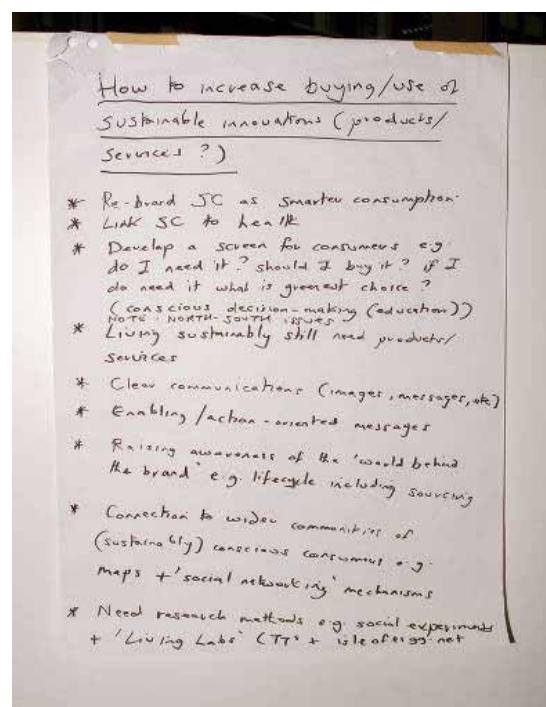 How to increase buying/use of
sustainable innovations (products/
services?)
* Re-brand SC as smarter consumption.
* Link SC to health
* Develop a screen for consumers e.g.
do I need it? should I buy it? if I
do need it what is greenest choice?
(conscious decision-making (education))
NOTE: NORTH-SOUTH ISSUES
* Living sustainably still need products/
services
* Clear communications (images, messages, etc)
* Enabling/action-oriented messages
* Raising awareness of the 'world behind
the brand' e.g. lifecycle including sourcing
* Connection to wider communities of
(sustainably) conscious consumers e.g.
maps + 'social networking' mechanisms
* Need research methods e.g. social experiments
+ 'Living Labs' (TTs + isleofeigg.net